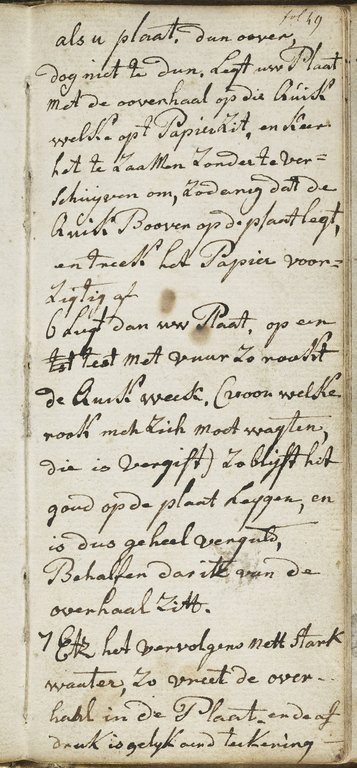 fol 49
als u plaat. dun oover,
dog niet te dun. Legt uw Plaat
Met de ooverhaal op die Quik
welke op't Papier Zit, en keer
het te Zaamen Zonder te ver=
schuijven om, Zodanig dat de
Quik Booven op de plaat legt,
en treck het Papier voor-
Zigtig af
6 Legt dan uw Plaat, op een
test met vuur Zo rookt
de Quik week, (voor welke
rook men Zich moet wagten,
die is vergift) Zo blijft hit
goud op de plaat Leggen, en
is dus geheel verguld,
Behalfen dar ik van de
overhaal Zitt.
7 Etz het vervolgens mett Stark
waater, Zo vreet de over-
hahl in de Plaat. en de af
druk is gelyk aend teekening